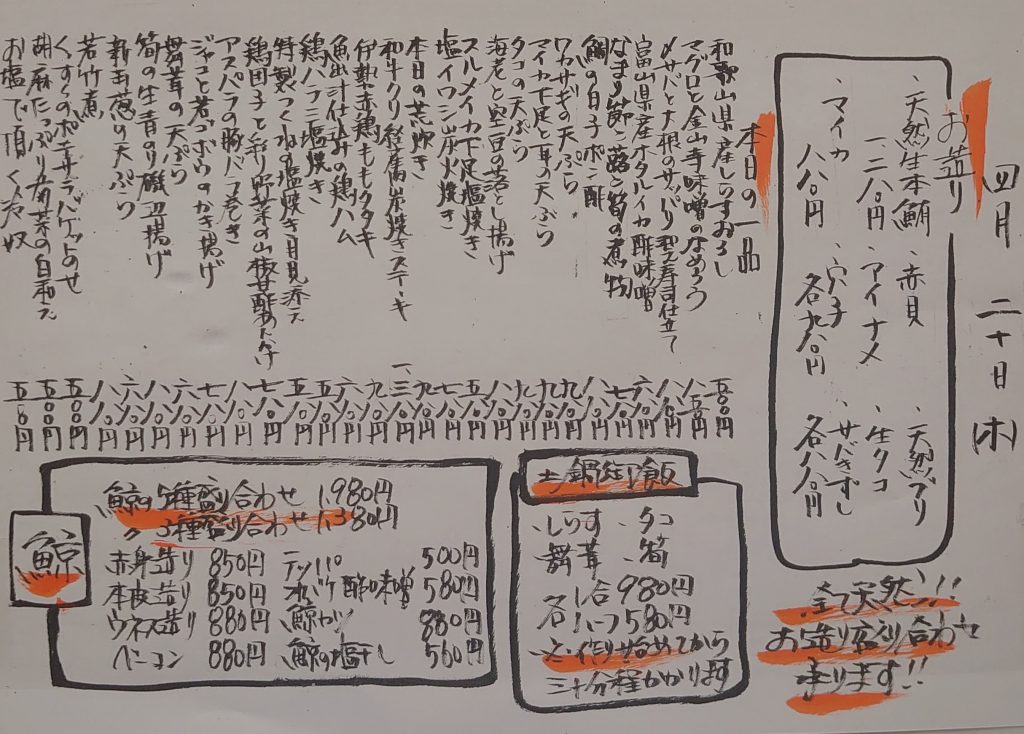 四月二十日(木)
お造り
・天然生本鮪 一、二八〇円
・マイカ 八八〇円
・赤貝
・アイナメ
・穴子
各九八〇円
・天然ブリ
・生タコ
・サバきずし
各八八〇円
全て天然!!
お造り盛り合わせ
承ります!!
本日の一品
和歌山県産しらすおろし 五〇〇円
マグロと金山寺味噌のなめろう 八五〇円
〆サバと大根のサッパリ型寿司仕立て 八八〇円
富山県産ホタルイカ酢味噌
なまり節と蕗と筍の煮物
鯛の白子ポン酢
ワカサギの天ぷら
マイカ下足と耳の天ぷら
タコの天ぷら
海老と空豆の落とし揚げ
スルメイカ下足塩焼き
塩イワシ炭火焼き
本日の荒炊き
和牛クリ 炭焼きステーキ
伊勢赤鶏ももタタキ
魚出汁仕込みの鶏ハム
鶏ハラミ塩焼き
特製つくねの塩焼き月見添え
鶏団子と彩り野菜の山椒甘酢あんかけ
アスパラの豚バラ巻き
ジャコと若ゴボウのかき揚げ
舞茸の天ぷら
筍の生青のり磯辺揚げ
新玉葱の天ぷら
若竹煮
くずくのポテサラバゲットのせ 五〇〇円
胡麻たっぷり 菜の白和え 五〇〇円
お塩で頂く冷奴 五〇〇円
土鍋釜飯
・しらす ・タコ
・舞茸 ・筍
各一合980円
ハーフ580円
※作り始めてから
三十分程かかります
鯨
鯨の5種盛り合わせ 1,980円
〃 3種盛り合わせ 1,380円
赤身造り 850円
本皮造り 850円
ウネス造り 880円
ベーコン 880円
テッパ 500円
オバケ酢味噌 580円
鯨カツ 880円
鯨の塩干し 560円